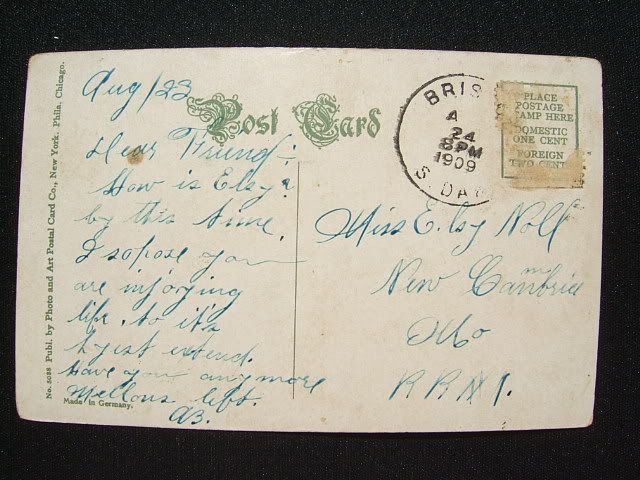 Aug/23
Post Card
Dear Friend:
How is Elsy
by this time.
I sopose you
are injoying
life. to it's
hyist extend.
Have you any more
Mellons left.
AB.
BRIS
A
24
8 PM
1909
S. DAK
PLACE
POSTAGE
STAMP HERE
DOMESTIC
ONE CENT
FOREIGN
TWO CENT
Miss Elsy Noll
New Cambria
Mo
RR #1.
No. 5088 Publ. by Photo and Art Postal Card Co., New York. Phila. Chicago.
Made in Germany.